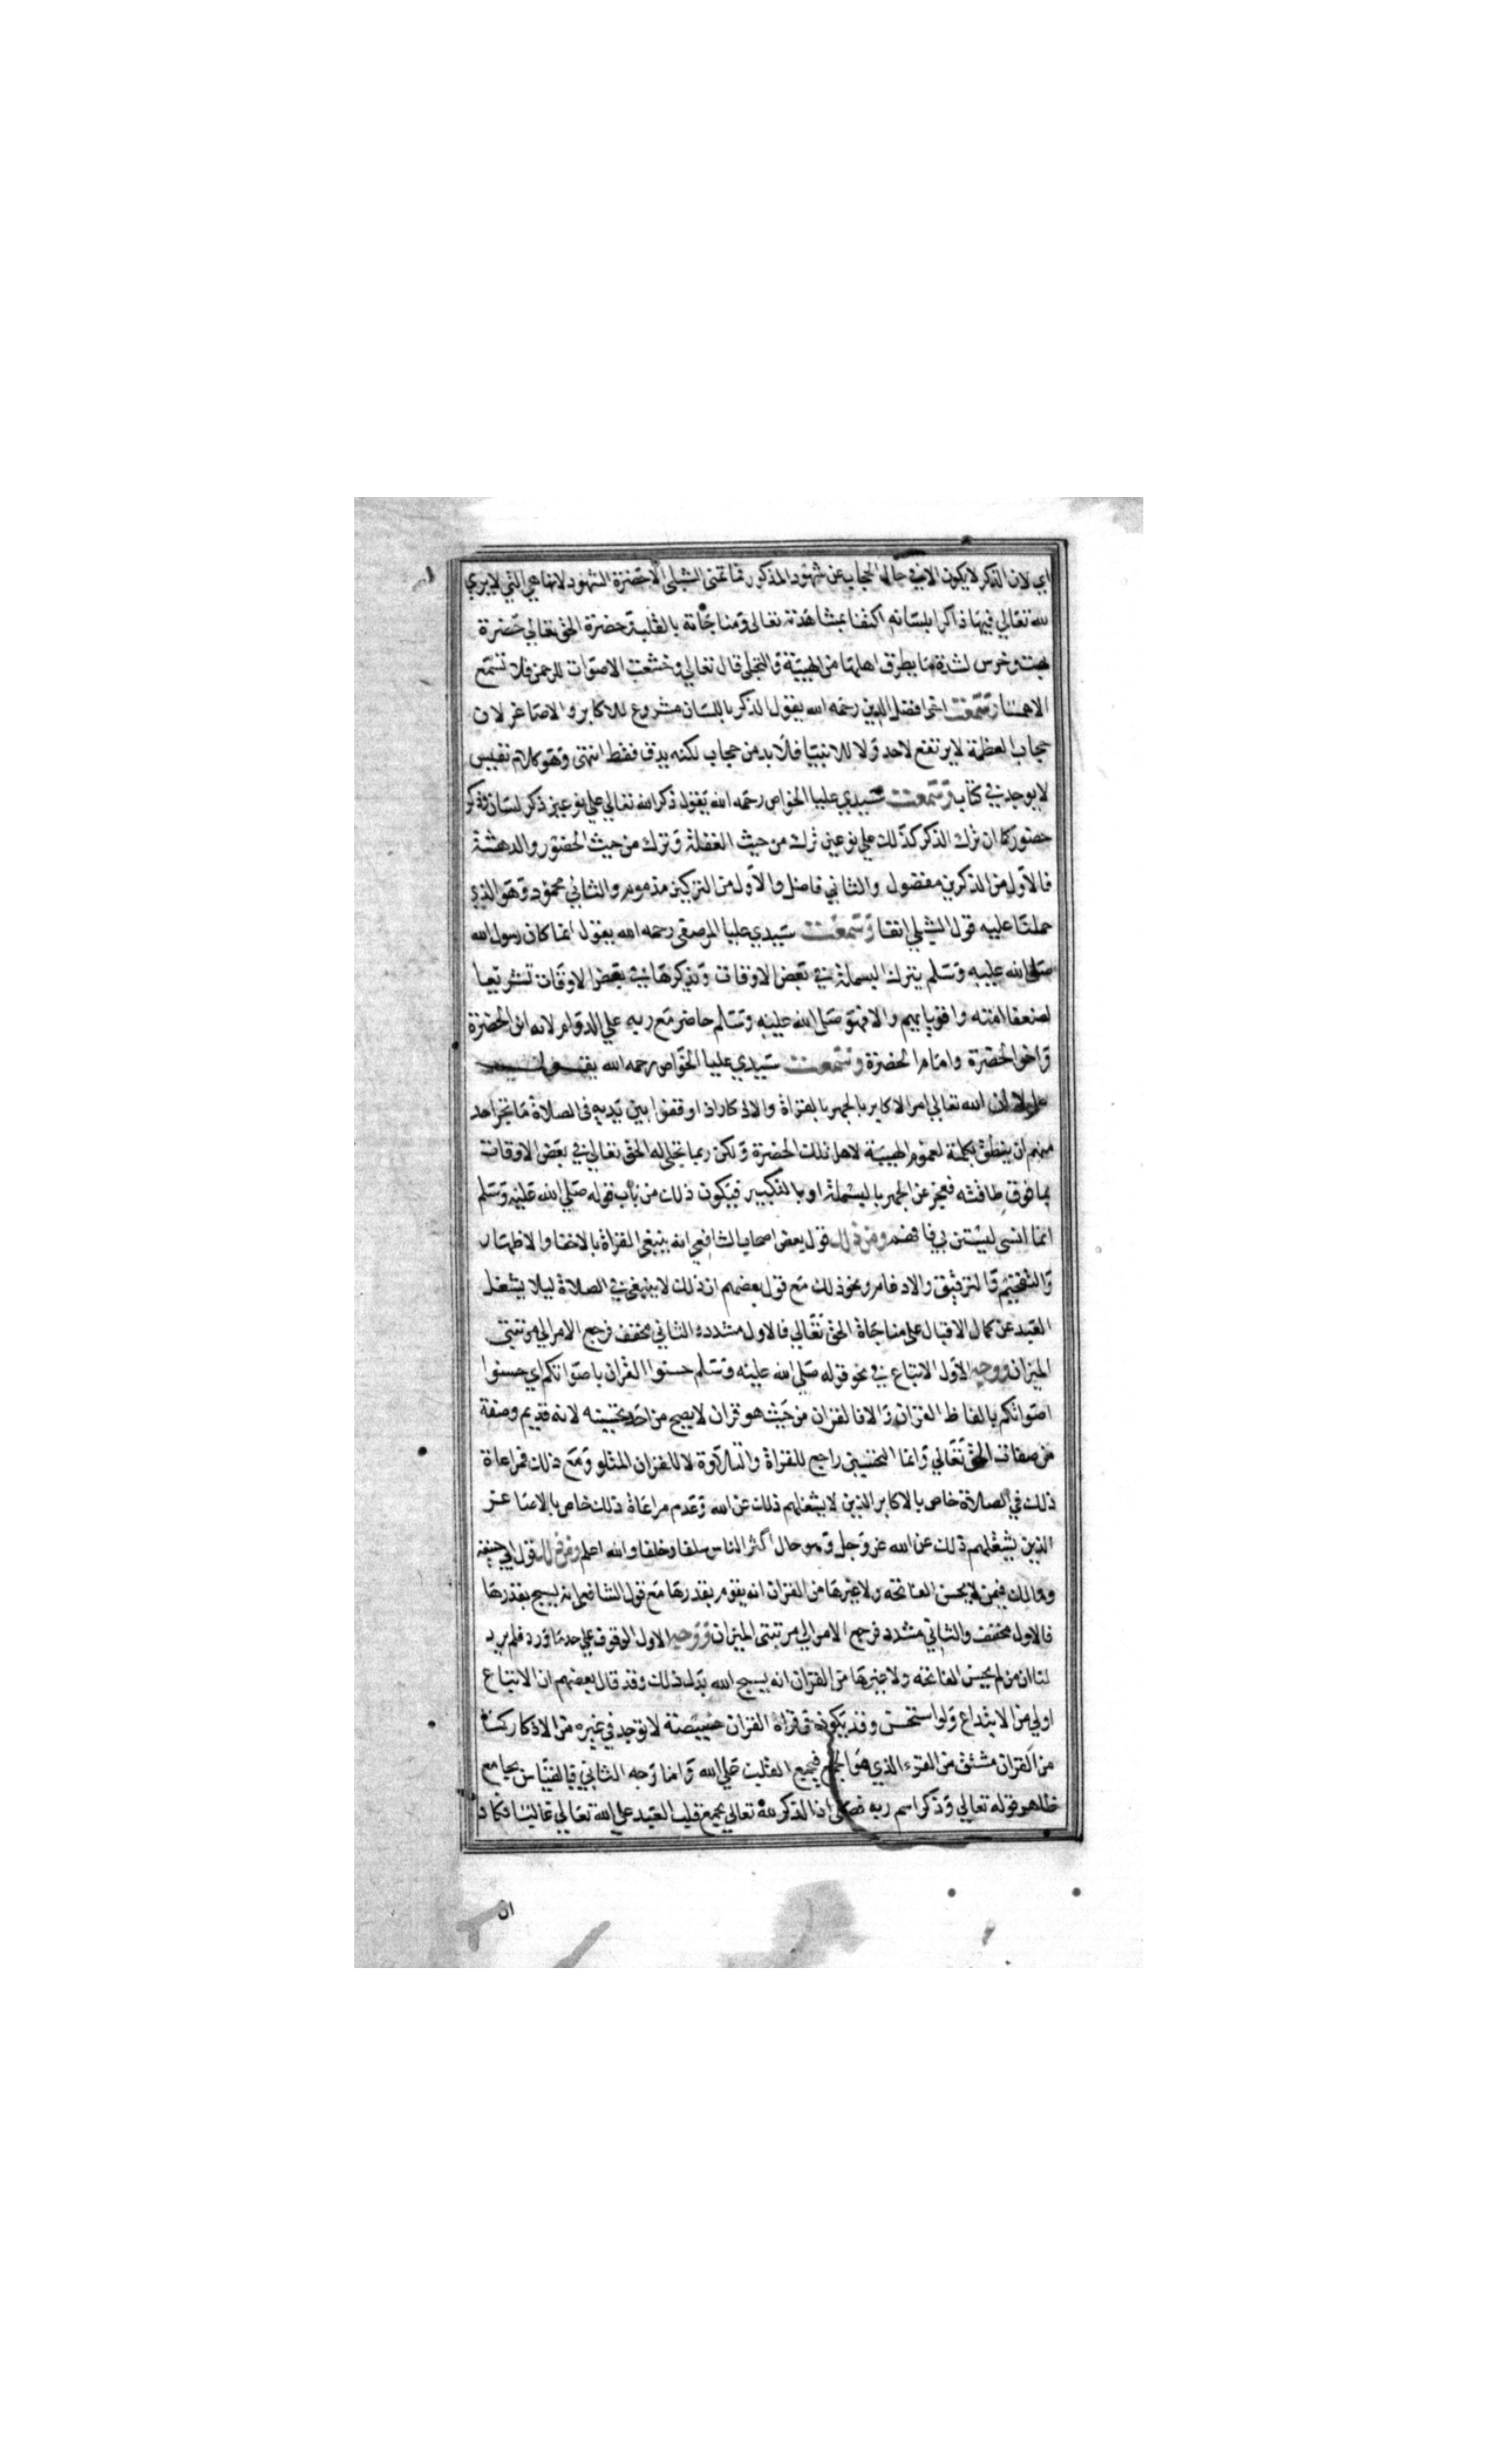 اي لان الذكر لا يكون الا في حال الحجاب عن شهود المذكور فما تمنى الشبلي الا حضرة الشهود لانها هي التي لا يري
لله تعالي فيها ذاكرا بلسانه اكتفا بمشاهدته تعالى ومناجاته بالقلب حضرة الحق تعالي حضرة
بهت وخرس لشدة ما يطرق اهلها من الهيبة والتجلي قال تعالي وخشعت الاصوات للرحمن فلا تسمع
الا همسا وسمعت اخي افضل الدين رحمه الله يقول الذكر باللسان مشروع للاكابر والاصاغر لان
حجاب العظمة لا يرتفع لاحد ولا للانبيا فلا بد من حجاب لكنه يدق فقط انتهى وهو كلام نفيس
لا يوجد في كتاب وسمعت سيدي عليا الخواص رحمه الله يقول ذكر الله تعالي علي نوعين ذكر لسان وذكر
حضور كما ان ترك الذكر كذلك علي نوعين ترك من حيث الغفلة وترك من حيث الحضور والدهشة
فالاول من الذكرين مفضول والثاني فاضل والاول من التركين مذموم والثاني محمود وهو الذي
حملنا عليه قول الشبلي انفا وسمعت سيدي عليا المرصفى رحمه الله يقول انما كان رسول الله
صلى الله عليه وسلم يترك البسملة في بعض الاوقات ويذكرها في بعض الاوقات تشريعا
لضعفا امته واقويايهم والا فهو صلى الله عليه وسلم حاضر مع ربه علي الدوام لانه ابن الحضرة
واخو الحضرة وامام الحضرة وسمعت سيدي عليا الخواص رحمه الله يقول
لولا ان الله تعالي امر الاكابر بالجهر بالقراة والاذكار اذا وقفوا بين يديه في الصلاة ما تجرا احد
منهم ان ينطق بكلمة لعموم الهيبة لاهل تلك الحضرة ولكن ربما تجلى له الحق تعالي في بعض الاوقات
بما فوق طاقته فيعجز عن الجهر بالبسملة او بالتكبير فيكون ذلك من باب قوله صلي الله عليه وسلم
انما انسى ليستن بي فافهم ومن ذلك قول بعض اصحاب الشافعي انه ينبغي القراة بالاخفا والاظهار
والتفخيم والترقيق والادغام ونحو ذلك مع قول بعضهم ان ذلك لا ينبغي في الصلاة ليلا يشغل
العبد عن كمال الاقبال على مناجاة الحق تعالي فالاول مشدد والثاني مخفف فرجع الامر الي مرتبتي
الميزان ووجه الاول الاتباع في نحو قوله صلي الله عليه وسلم حسنوا القران باصواتكم اي حسنوا
اصواتكم بالفاظ القران والا فالقران من حيث هو قران لا يصح من احد تحسينه لانه قديم وصفة
من صفات الحق تعالي وانما التحسين راجع للقراة والتلاوة لا للقران المتلو ومع ذلك فمراعاة
ذلك في الصلاة خاص بالاكابر الذين لا يشغلهم ذلك عن الله وعدم مراعاة ذلك خاص بالاصاغر
الذين يشغلهم ذلك عن الله عز وجل وهو حال اكثر الناس سلفا وخلفا والله اعلم ومن ذلك قول ابي حنيفة
ومالك فيمن لا يحسن الفاتحة ولا غيرها من القران انه يقوم بقدرها مع قول الشافعي انه يسبح بقدرها
فالاول مخفف والثاني مشدد فرجع الامر الي مرتبتى الميزان ووجه الاول الوقوف علي حد ما ورد فلم يرد
لنا ان من لم يحسن الفاتحة ولا غيرها من القران انه يسبح الله بدل ذلك وقد قال بعضهم ان الاتباع
اولي من الابتداع ولو استحسن وقد يكون في قراة القران خصيصة لا توجد في غيره من الاذكار
من القران مشتق من القرء الذي هو الجمع فيجمع القلب علي الله واما وجه الثاني فبالقياس بجامع
ظاهر قوله تعالي وذكر اسم ربه فصلى اذ الذكر لله تعالي يجمع قلب العبد علي الله تعالي غالبا فكاد
ان